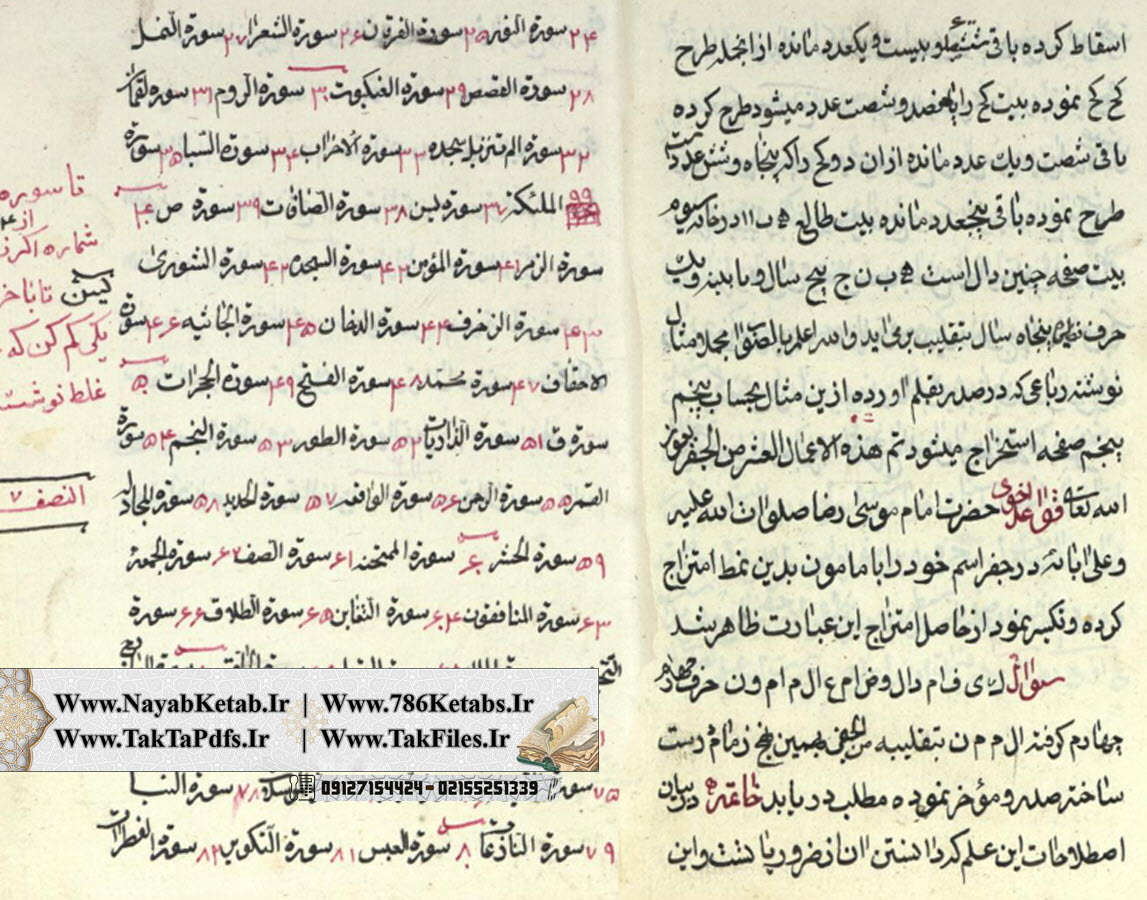 اسقاط کرده باقی ششصد و بیست و یکعدد مانده از انجمله طرح
کح کح نموده بیت کح را پانصد و شصت عدد میشود طرح کرده
باقی شصت و یك عدد مانده ازان دو کح را که پنجاه و شش عددست
طرح نموده باقی پنجعدد مانده بیت طالع ه ب ۱۱ در خانه سیوم
بیت صفحه چنین دال است ه ب ن ج پنج سال و یا
حرف نظیره پنجاه سال بتقلیب برمی اید والله اعلم بالصواب مجملا مثال
نوشته رباعی که در صدر بقلم اورده ازین مثال بحساب پنجم
پنجم صفحه استخراج میشود تم هذه الاعمال من الجفر
الله تعالی حضرت امام موسی رضا صلوات الله علیه
وعلی ابائه در جفر اسم خود را با مامون بدین نمط امتزاج
کرده و تکسیر نمود از حاصل امتزاج این عبارت ظاهر شد
سؤال ل ی ف ام دال و ض ام ع ال م ام ون حرف چهارم
چهارم گرفته ال م م ن بتقلیبه من الخفی بهمین نهج زمام درست
ساخته صدر و مؤخر نموده مطلب دریابد خاتمه در بیان
اصطلاحات این علم که دانستن ان از ضروریا تست و این
۲۴ سورة النور ۲۵ سورة الفرقان ۲۶ سورة الشعرا ۲۷ سورة النمل
۲۸ سورة القصص ۲۹ سورة العنکبوت ۳۰ سورة الروم ۳۱ سوره لقمان
۳۲ سورة الم تنزیل سجده ۳۳ سورة الاحزاب ۳۴ سورة السبا ۳۵ سورة
۹۹ الملئکة ۳۷ سورة یس ۳۸ سورة الصافات ۳۹ سورة ص ۴۰
سورة الزمر ۴۱ سورة المؤمن ۴۲ سورة السجده ۴۲ سورة الشوری
۴۳ سورة الزخرف ۴۴ سورة الدخان ۴۵ سورة الجاثیه ۴۶ سورة
الاحقاف ۴۷ سورة محمد ۴۸ سورة الفتح ۴۹ سورة الحجرات ۵۰
سورة ق ۵۱ سورة الذاریات ۵۲ سورة الطور ۵۳ سورة النجم ۵۴ سورة
القمر ۵۵ سورة الرحمن ۵۶ سورة الواقعه ۵۷ سورة الحدید ۵۸ سورة المجادله
۵۹ سورة الحشر ۶۰ سورة الممتحنه ۶۱ سورة الصف ۶۲ سورة الجمعة
۶۳ سورة المنافقون ۶۴ سورة التغابن ۶۵ سورة الطلاق ۶۶ سورة
۷۵ سورة
۷۸ سورة النبا
۷۹ سورة النازعات ۸۰ سورة العبس ۸۱ سورة التکویر ۸۲ سورة الفطرات
تا سوره
از ۴
شماره اکر
تا باخر
یکی کم کن که
غلط نوشت
النصف ۷
Www.NayabKetab.Ir | Www.786Ketabs.Ir
Www.TakTaPdfs.Ir | Www.TakFiles.Ir
09127154424 - 02155251339